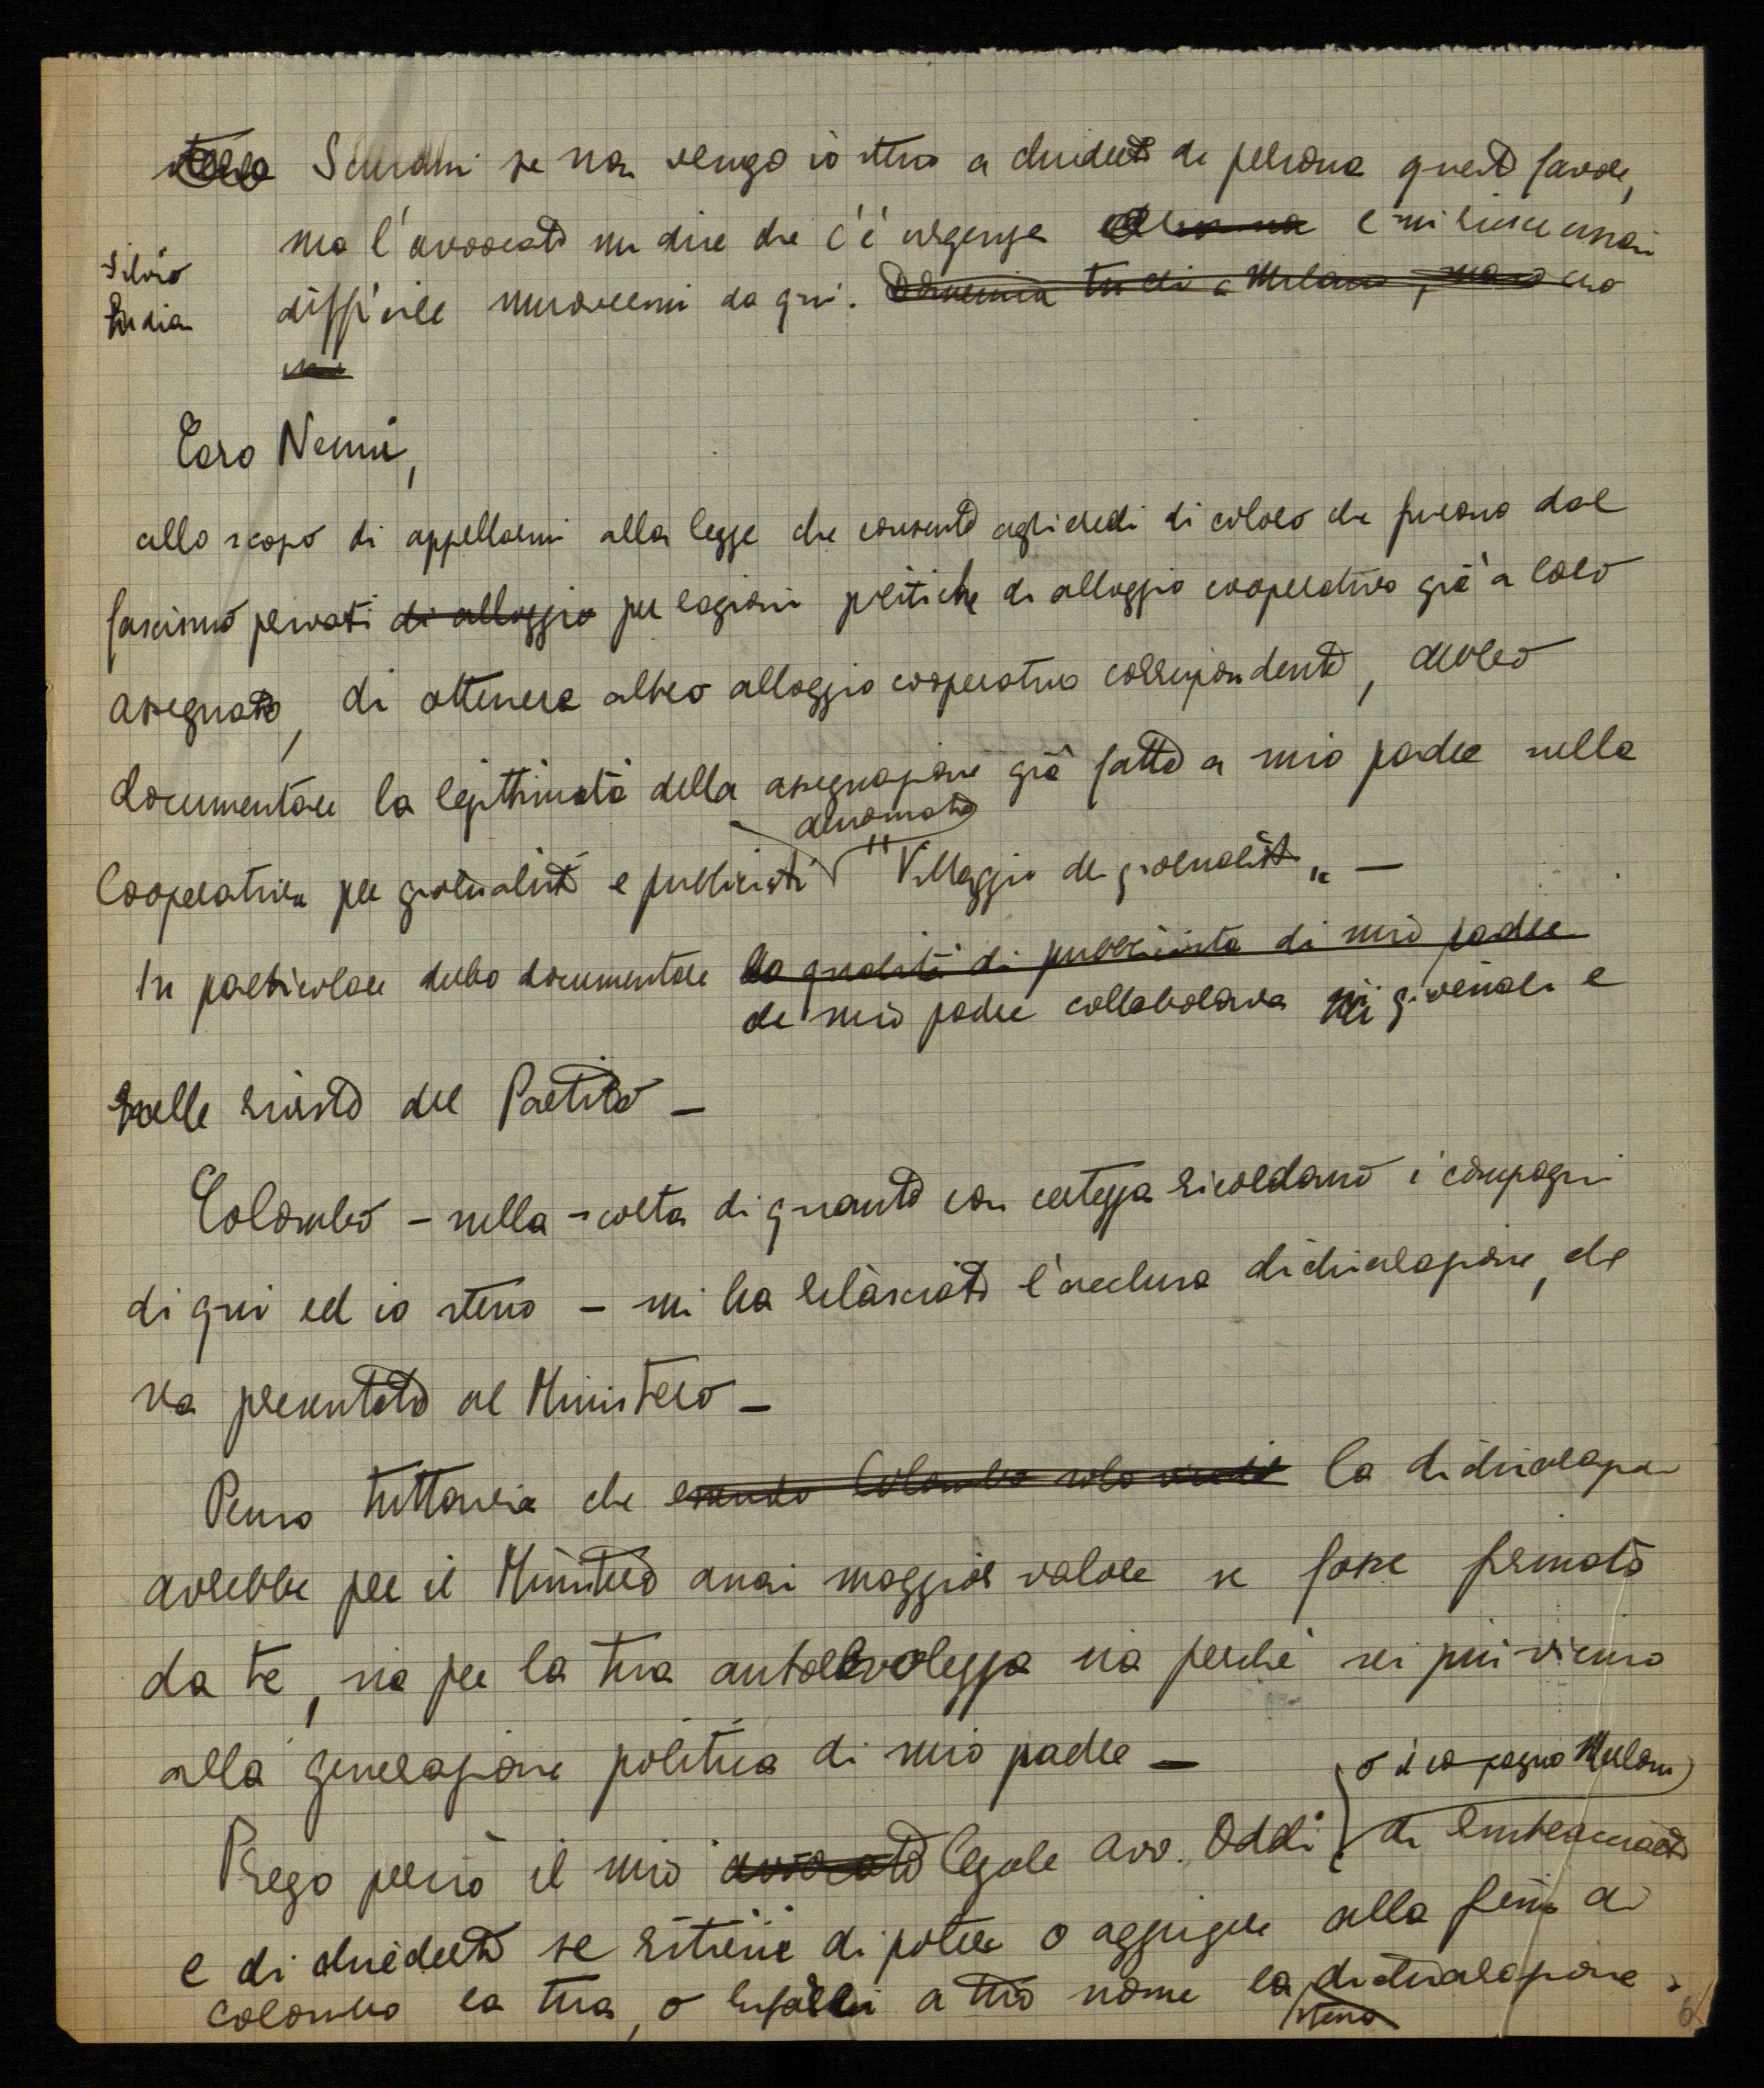 Scusami se non vengo io stesso a chiederti di persona questo favore,
ma l'avvocato mi dice che c'è urgenza e mi riesce assai
Silvio
difficile muovermi da qui. Domenica tu di a Milano,
Caro Nenni,
allo scopo di appellarmi alla legge che consente agli eredi di coloro che furono dal
fascismo privati di alloggio per ragioni politiche di alloggio cooperativo già a loro
assegnato, di ottenere altro alloggio cooperativo corrispondente, debbo
documentare la legittimità della assegnazione già fatta a mio padre nella
denominata
Cooperativa per giornalisti e pubblicisti "Villaggio dei giornalisti" —
In particolare debbo documentare la qualità di pubblicista di mio padre
che mio padre collaborava nei giornali e
nelle riviste del Partito —
Colombo – nella scorta di quanto con certezza ricordano i compagni
di qui ed io stesso – mi ha rilasciato l'acclusa dichiarazione, che
va presentata al Ministero —
Penso tuttavia che essendo Colombo solo la dichiarazione
avrebbe per il Ministero assai maggior valore se fosse firmata
da te, sia per la tua autorevolezza sia perché sei più vicino
alla generazione politica di mio padre —
o il compagno
Prego perciò il mio avvocato legale avv. Oddi di rintracciarti
e di chiederti se ritieni di poter o aggiungere alla firma di
Colombo la tua, o rifarla a tuo nome la dichiarazione
stessa
6